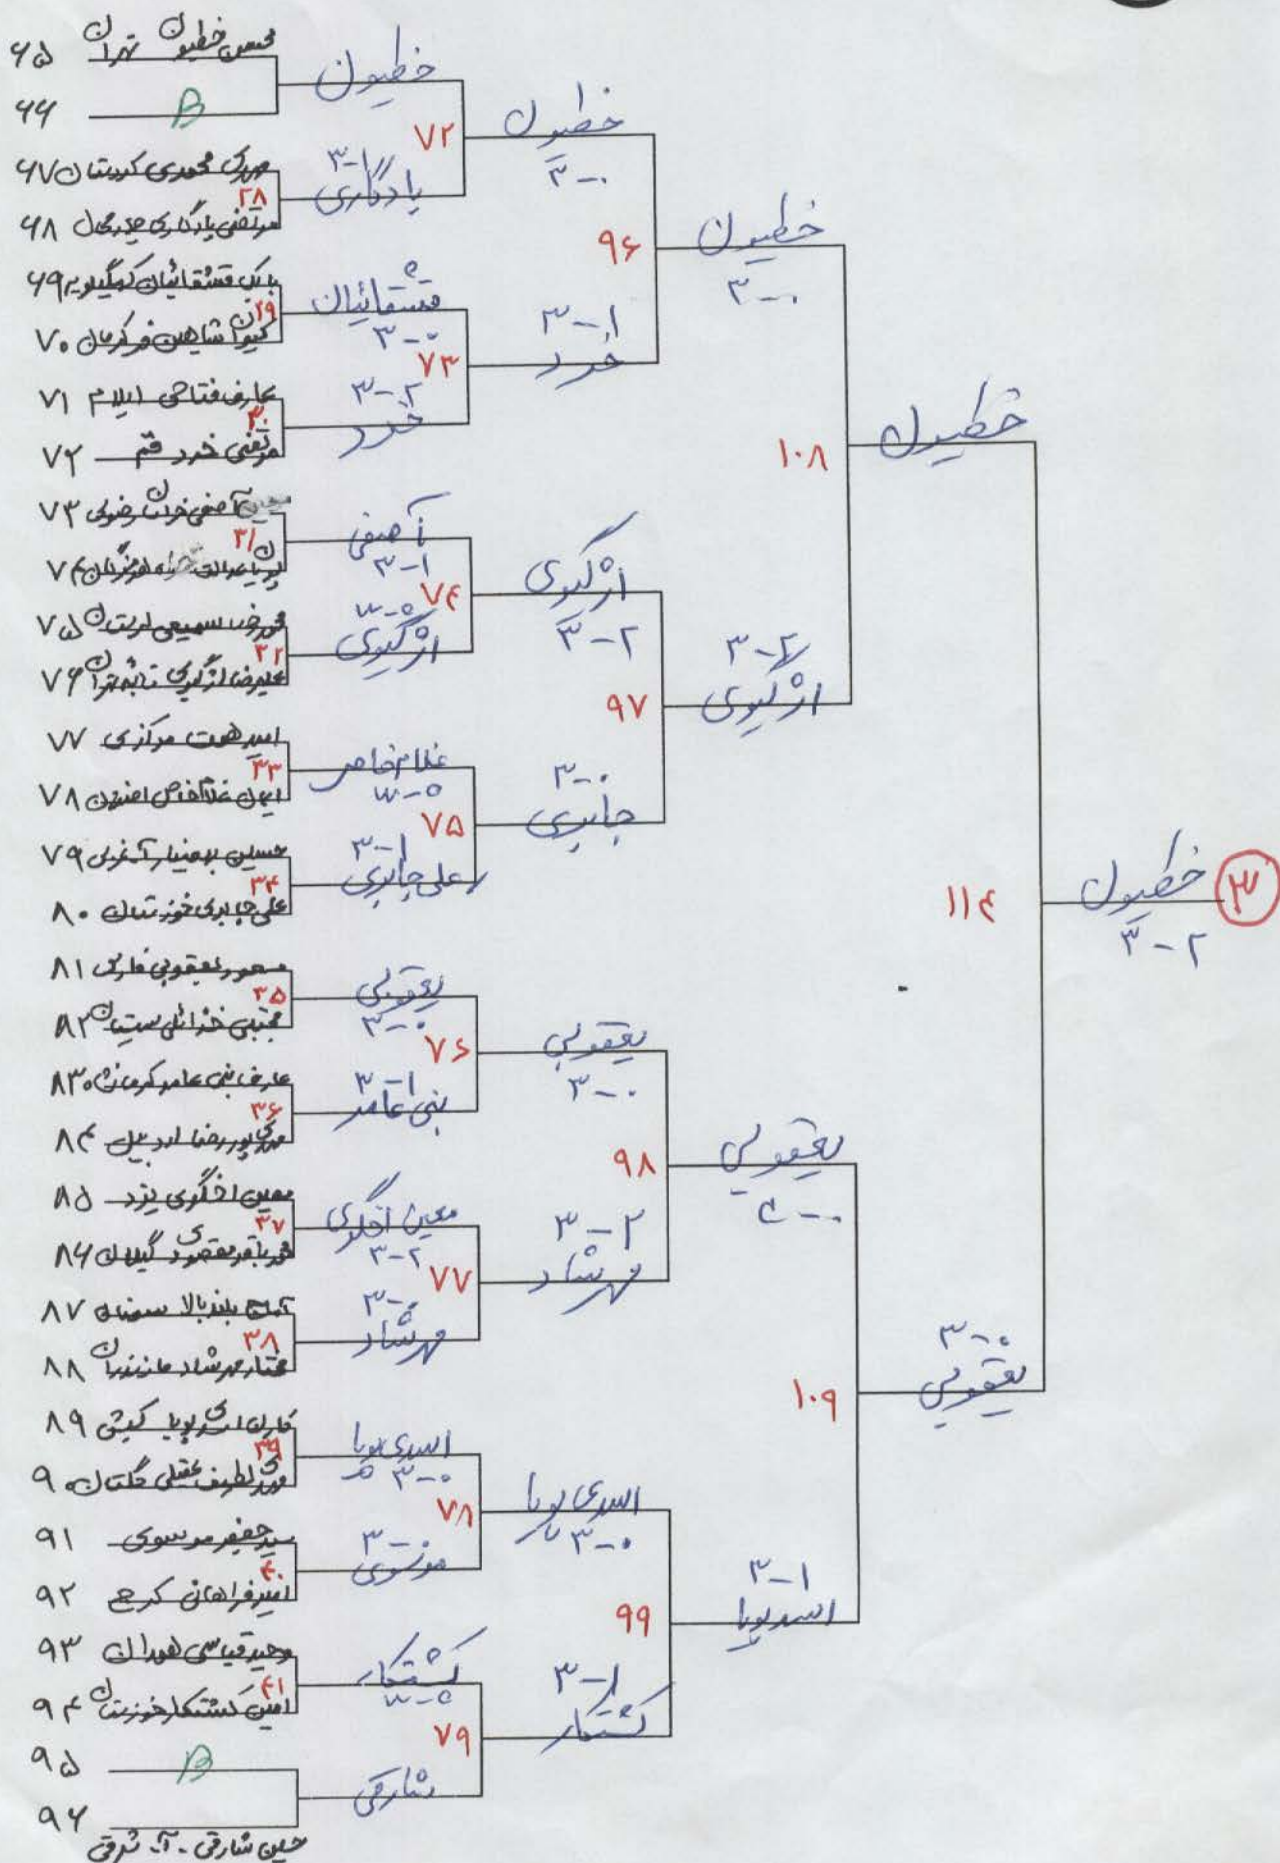 ۶۵ محسن خطیون تهران
۶۶ B
۶۷ مهدی محمدی کردستان
۲۸
۶۸ مرتضی یادگاری
۶۹ بابک قشقائیان کهگیلویه
۲۹
۷۰ کیوان شاهین فر کرمان
۷۱ عارف فتاحی ایلام
۳۰
۷۲ مرتضی خرد قم
۷۳ آصفی خراسان رضوی
۳۱
۷۴ پوریا عدالت هرمزگان
۷۵ محمدرضا سمیعی لرستان
۳۲
۷۶ علیرضا اژگیوی تهران
۷۷ امید همت مرکزی
۳۳
۷۸ ایمان غلام خاص
۷۹ حسین بهمنیار آ.غربی
۳۴
۸۰ علی جابری خوزستان
۸۱ مسعود یعقوبی فارس
۳۵
۸۲ مجتبی خزائلی سیستان
۸۳ عارف بنی عامر کرمانشاه
۳۶
۸۴ مهدی پوررضا اردبیل
۸۵ معین اخگری یزد
۳۷
۸۶ محمدباقر مقصودی گیلان
۸۷ آماج بلندبالا سمنان
۳۸
۸۸ مختار مهرشاد مازندران
۸۹ کارن اسدی پویا کیش
۳۹
۹۰ مهدی لطیف عقیلی گلستان
۹۱ سید جعفر موسوی
۴۰
۹۲ امیر فراهانی کرج
۹۳ وحید قیاسی همدان
۴۱
۹۴ امین کشتکار خوزستان
۹۵ B
۹۶ حسین شارقی - آ. شرقی
خطیون
۷۲
۳-۱
یادگاری
قشقائیان
۳-۰
۷۳
۳-۲
خرد
آصفی
۳-۱
۷۴
۳-۰
اژگیوی
غلام خاص
۳-۰
۷۵
۳-۱
علی جابری
یعقوبی
۳-۰
۷۶
۳-۱
بنی عامر
معین اخگری
۳-۲
۷۷
۳-۰
مهرشاد
اسدی پویا
۳-۰
۷۸
۳-۰
موسوی
کشتکار
۳-۰
۷۹
شارقی
خطیون
۳-۰
۹۶
۳-۱
خرد
اژگیوی
۳-۲
۹۷
۳-۰
جابری
یعقوبی
۳-۰
۹۸
۳-۲
مهرشاد
اسدی پویا
۳-۰
۹۹
۳-۱
کشتکار
خطیون
۳-۰
۱۰۸
۳-۲
اژگیوی
یعقوبی
۳-۰
۱۰۹
۳-۱
اسدپویا
خطیون
۱۱۴
۳-۰
یعقوبی
خطیون
۳-۲
۳